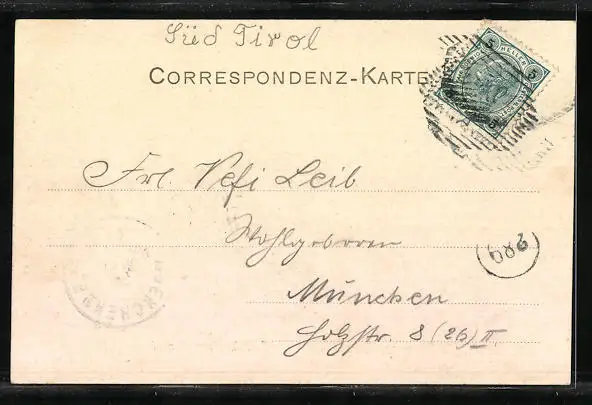 Süd Tirol
CORRESPONDENZ-KARTE
5 HELLER 5
Frl. Vefi Leib
Wohlgeboren
München
Holzstr. 8 (2b) II